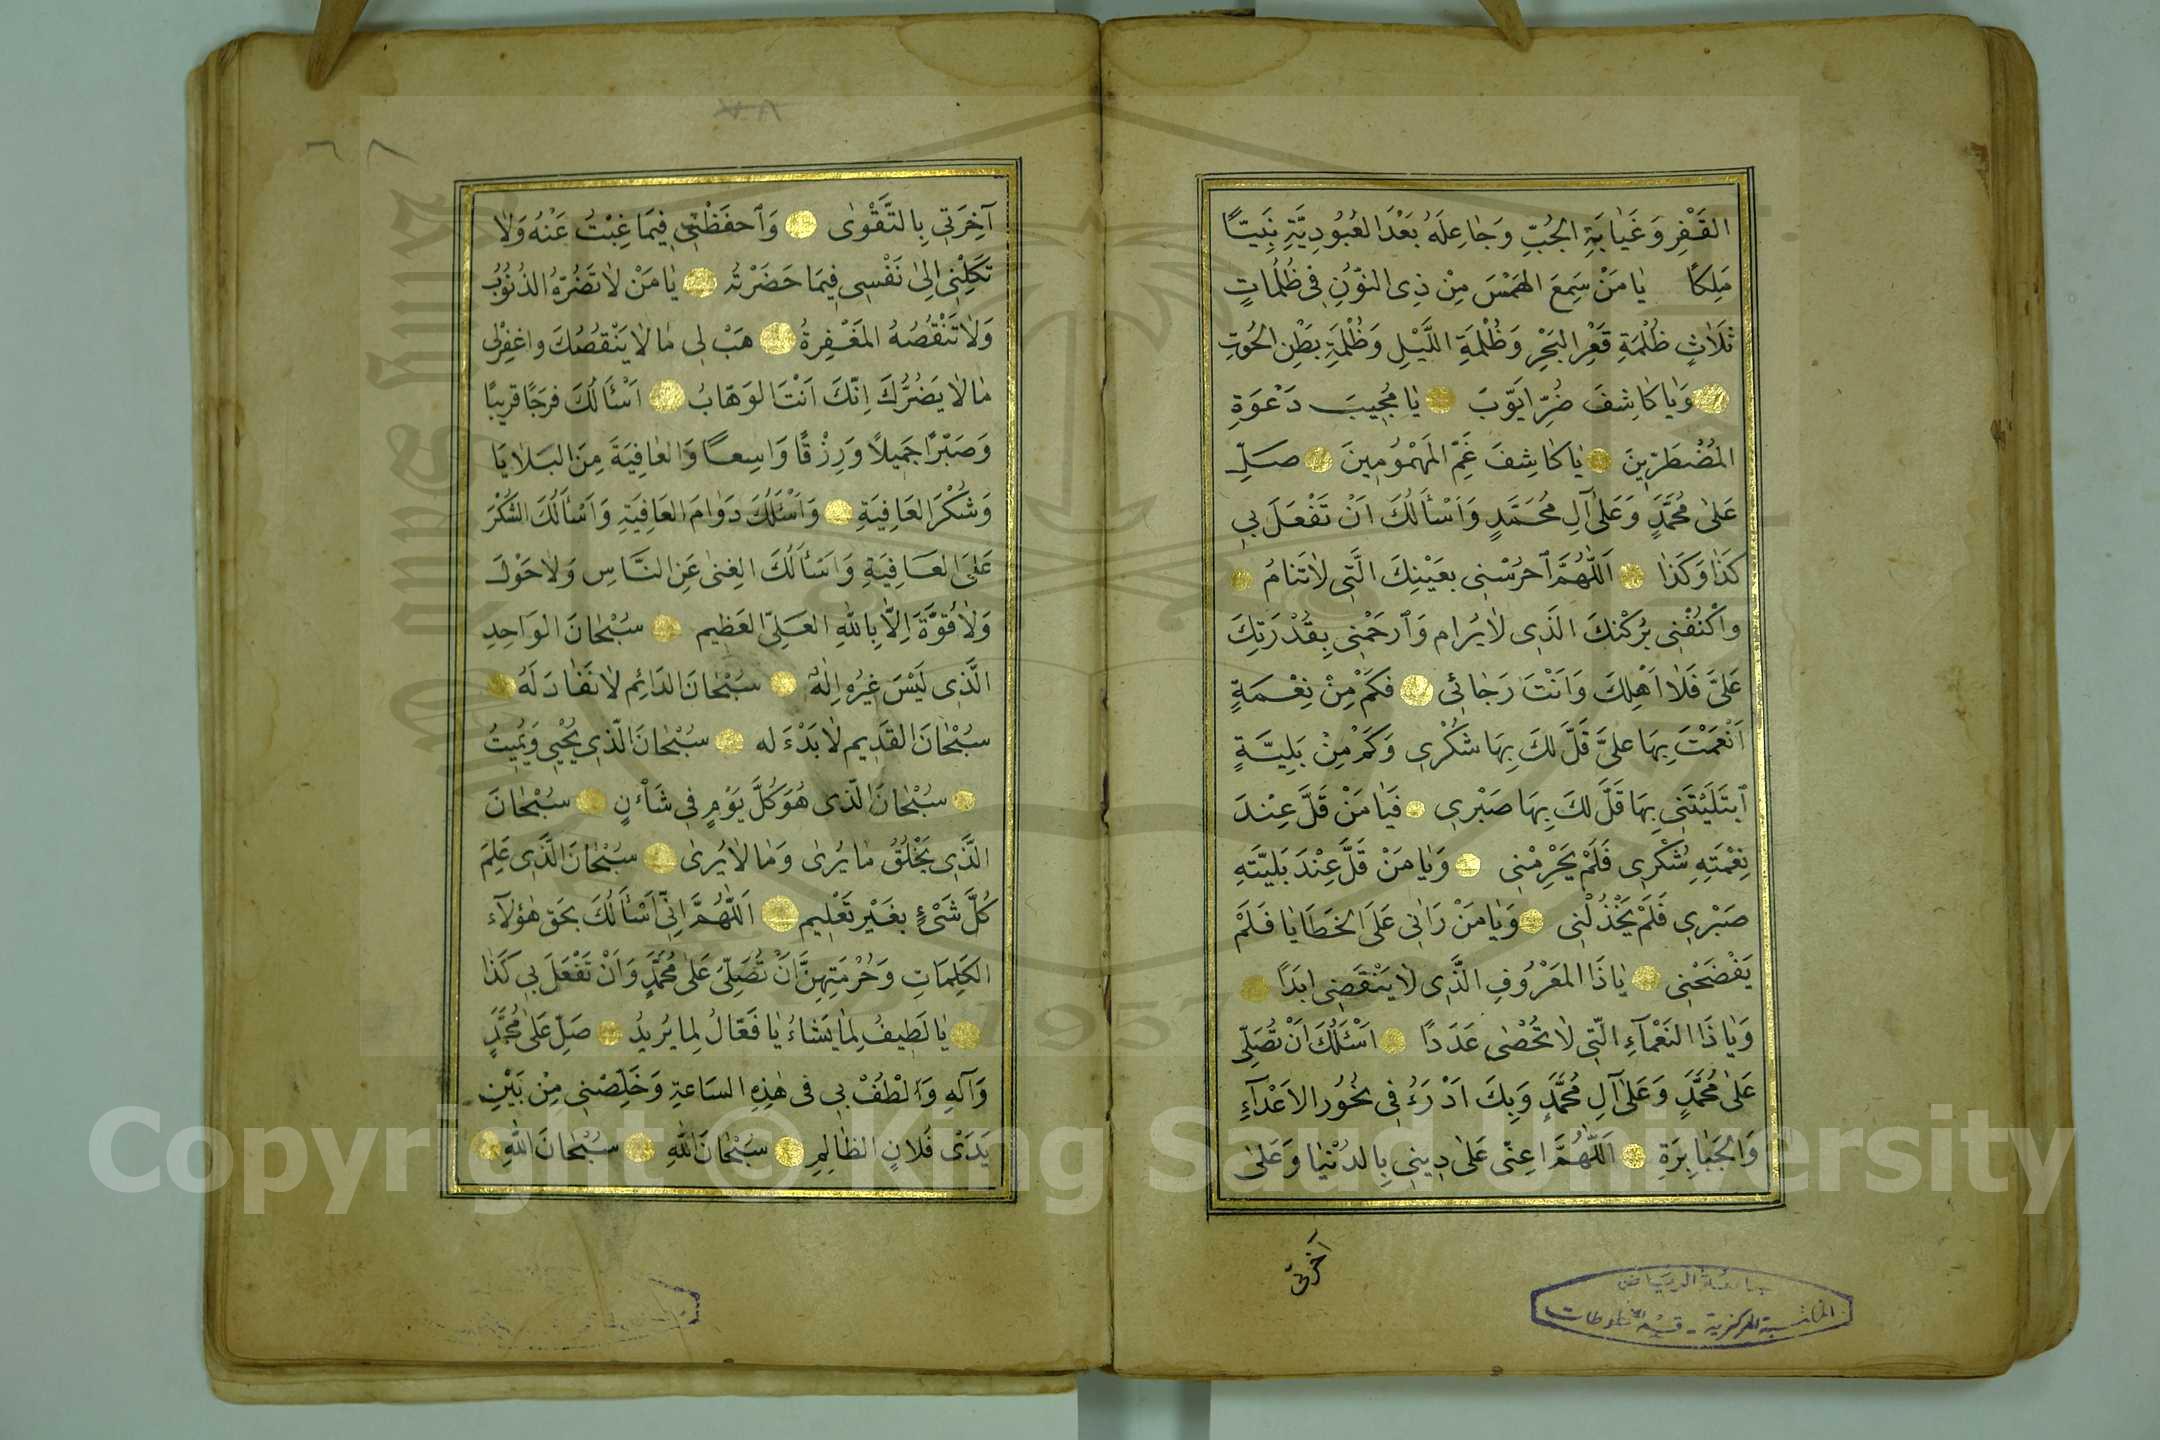 القَفْرِ وَغَيَابَةِ الجُبِّ وَجَاعِلَهُ بَعْدَ العُبُودِيَّةِ نَبِيًّا
مَلِكًا يَا مَنْ سَمِعَ الهَمْسَ مِنْ ذِى النّوُنِ فِى ظُلُمَاتٍ
ثَلَاثٍ ظُلْمَةِ قَعْرِ البَحْرِ وَظُلْمَةِ اللَّيْلِ وَظُلْمَةِ بَطْنِ الحُوتِ
وَيَا كَاشِفَ ضُرِّ اَيّوُبَ يَا مُجِيبَ دَعْوَةِ
المُضْطَرّيِنَ يَا كَاشِفَ غَمِّ المَهْمُومِينَ صَلِّ
عَلَى مُحَمَّدٍ وَعَلَى آلِ مُحَمَّدٍ وَاَسْأَلُكَ اَنْ تَفْعَلَ بِي
كَذَا وَكَذَا اَللّٰهُمَّ ٱحْرُسْنِى بِعَيْنِكَ الَّتِى لَا تَنَامُ
وَاكْنُفْنِى بِرُكْنِكَ الَّذِى لَا يُرَام وَٱرْحَمْنِى بِقُدْرَتِكَ
عَلَىَّ فَلَا اَهْلِكَ وَاَنْتَ رَجَائِى فَكَمْ مِنْ نِعْمَةٍ
اَنْعَمْتَ بِهَا عَلىَّ قَلَّ لَكَ بِهَا شُكْرِى وَكَمْ مِنْ بَلِيَّةٍ
ٱبْتَلَيْتَنِى بِهَا قَلَّ لَكَ بِهَا صَبْرِى فَيَا مَنْ قَلَّ عِنْدَ
نِعْمَتِهِ شُكْرِى فَلَمْ يَحْرِمْنِى وَيَا مَنْ قَلَّ عِنْدَ بَلِيَّتِهِ
صَبْرِى فَلَمْ يَخْذُلْنِى وَيَا مَنْ رَانِى عَلَى الخَطَايَا فَلَمْ
يَفْضَحْنِى يَا ذَا المَعْرُوفِ الَّذِى لَا يَنْقَضِى اَبَدًا
وَيَا ذَا النَعْمَآءِ الَّتِى لَا تُحْصَى عَدَدًا اَسْئَلُكَ اَنْ تُصَلِّىَ
عَلَى مُحَمَّدٍ وَعَلَى آلِ مُحَمَّدٍ وَبِكَ اَدْرَءُ فِى نُحُورِ الاَعْدَآءِ
وَالجَبَابِرَةِ اَللّٰهُمَّ اَعِنّى عَلَى دِينِى بِالدُنْيَا وَعَلَى
آخرتى
جامعة الرياض
المكتبة المركزية - قسم المخطوطات
٦٨
آخِرَتِى بِالتَّقْوٰى وَٱحفَظْنِى فِيمَا غِبْتُ عَنْهُ وَلَا
تَكِلْنِى اِلَى نَفْسِى فِيمَا حَضَرْتُه يَا مَنْ لَا تَضُرُّهُ الذُنُوْبُ
وَلَا تَنْقُصُهُ المَغْفِرةُ هَبْ لِى مَا لَا يَنْقُصُكَ واغفِرْلِى
مَا لَا يَضُرُّكَ اِنَّكَ اَنْتَ الوَهَّابُ اَسْأَلُكَ فَرَجًا قَرِيبًا
وَصَبْرًا جَمِيلًا وَرِزْقًا وَاسِعًا وَالعَافِيَةَ مِنَ البَلَايَا
وَشُكْرَ العَافِيَةِ وَاَسْئَلُكَ دَوَامَ العَافِيَةِ وَاَسْأَلُكَ الشُكْرَ
عَلَى العَافِيَةِ وَاَسْأَلُكَ الغِنَى عَنِ النَّاسِ وَلَا حَوْلَ
وَلَا قُوَّةَ اِلَّا بِاللّٰهِ العَلِىِّ العَظِيم سُبْحَانَ الوَاحِدِ
الَّذِى لَيْسَ غَيْرُهُ اِلٰهٌ سُبْحَانَ الدَائِمِ لَا نَفَادَ لَهُ
سُبْحَانَ القَدِيمِ لَا بَدْءَ لَه سُبْحَانَ الَّذِى يُحْيِى وَيُمِيتُ
سُبْحَانَ الَّذِى هُوَ كُلَّ يَوْمٍ فِى شَأْنٍ سُبْحَانَ
الَّذِى يَخْلُقُ مَا يُرٰى وَمَا لَا يُرٰى سُبْحَانَ الَّذِى عَلِمَ
كُلَّ شَىْءٍ بِغَيْرِ تَعْلِيم اَللّٰهُمَّ اِنِّى اَسْأَلُكَ بِحَقِ هٰؤُلَآءِ
الكَلِمَاتِ وَحُرْمَتِهِنَّ اَنْ تُصَلِّىَ عَلَى مُحَمَّدٍ وَاَنْ تَفْعَلَ بِى كَذَا
يَا لَطِيفُ لِمَا يَشَاءُ يَا فَعَّالُ لِمَا يُرِيدُ صَلِّ عَلَى مُحَمَّدٍ
وَآلهِ وَالْطُفْ بِى فِى هٰذِهِ السَاعَةِ وَخَلِّصْنِى مِنْ بَيْنِ
يَدَىْ فُلَانٍ الظَالِمِ سُبْحَانَ اللّٰهِ سُبْحَانَ اللّٰهِ
Copyright © King Saud University
1957